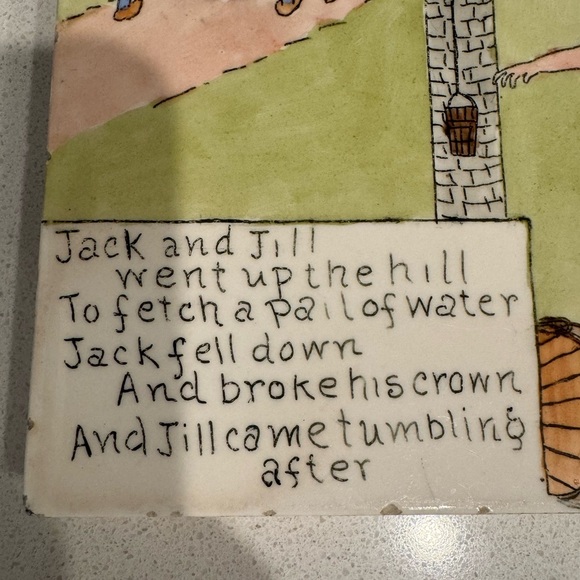 Jack and Jill
went up the hill
To fetch a pail of water
Jack fell down
And broke his crown
And Jill came tumbling
after